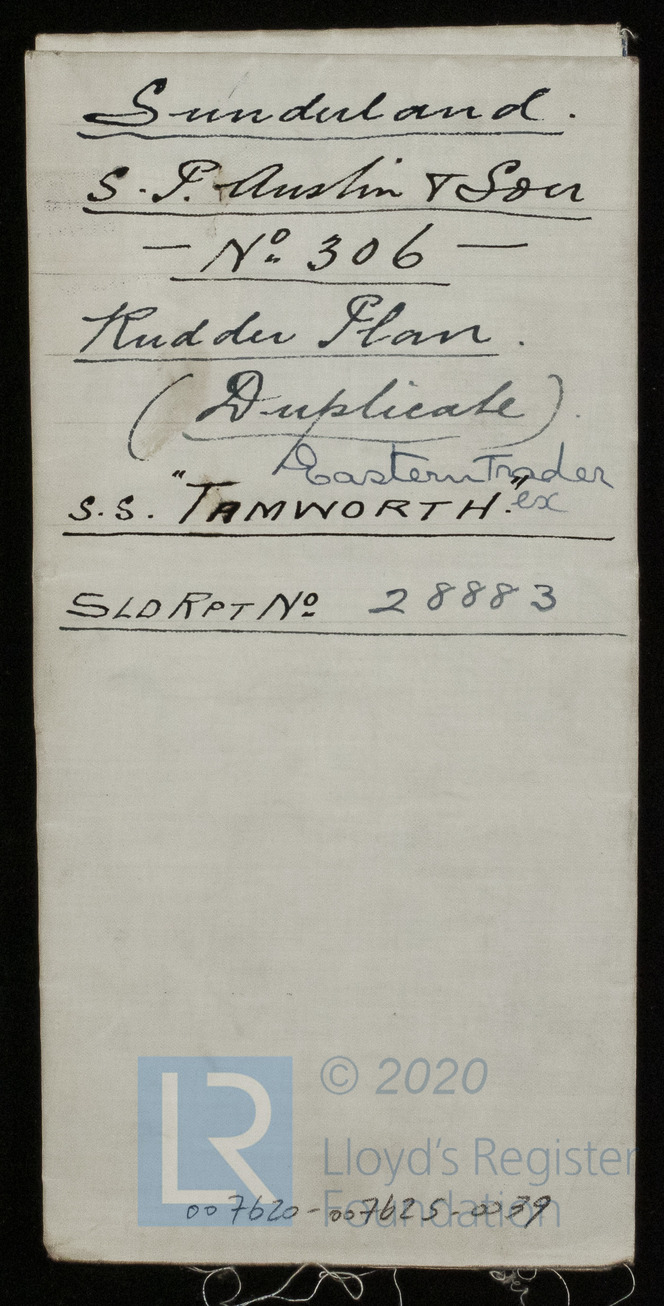 Sunderland.
S. P. Austin & Son
— Nº 306 —
Rudder Plan.
(Duplicate).
Eastern Trader
S.S. "TAMWORTH." ex
SLD RPT Nº 28883
© 2020
LR Lloyd's Register
Foundation
007620-007625-0039